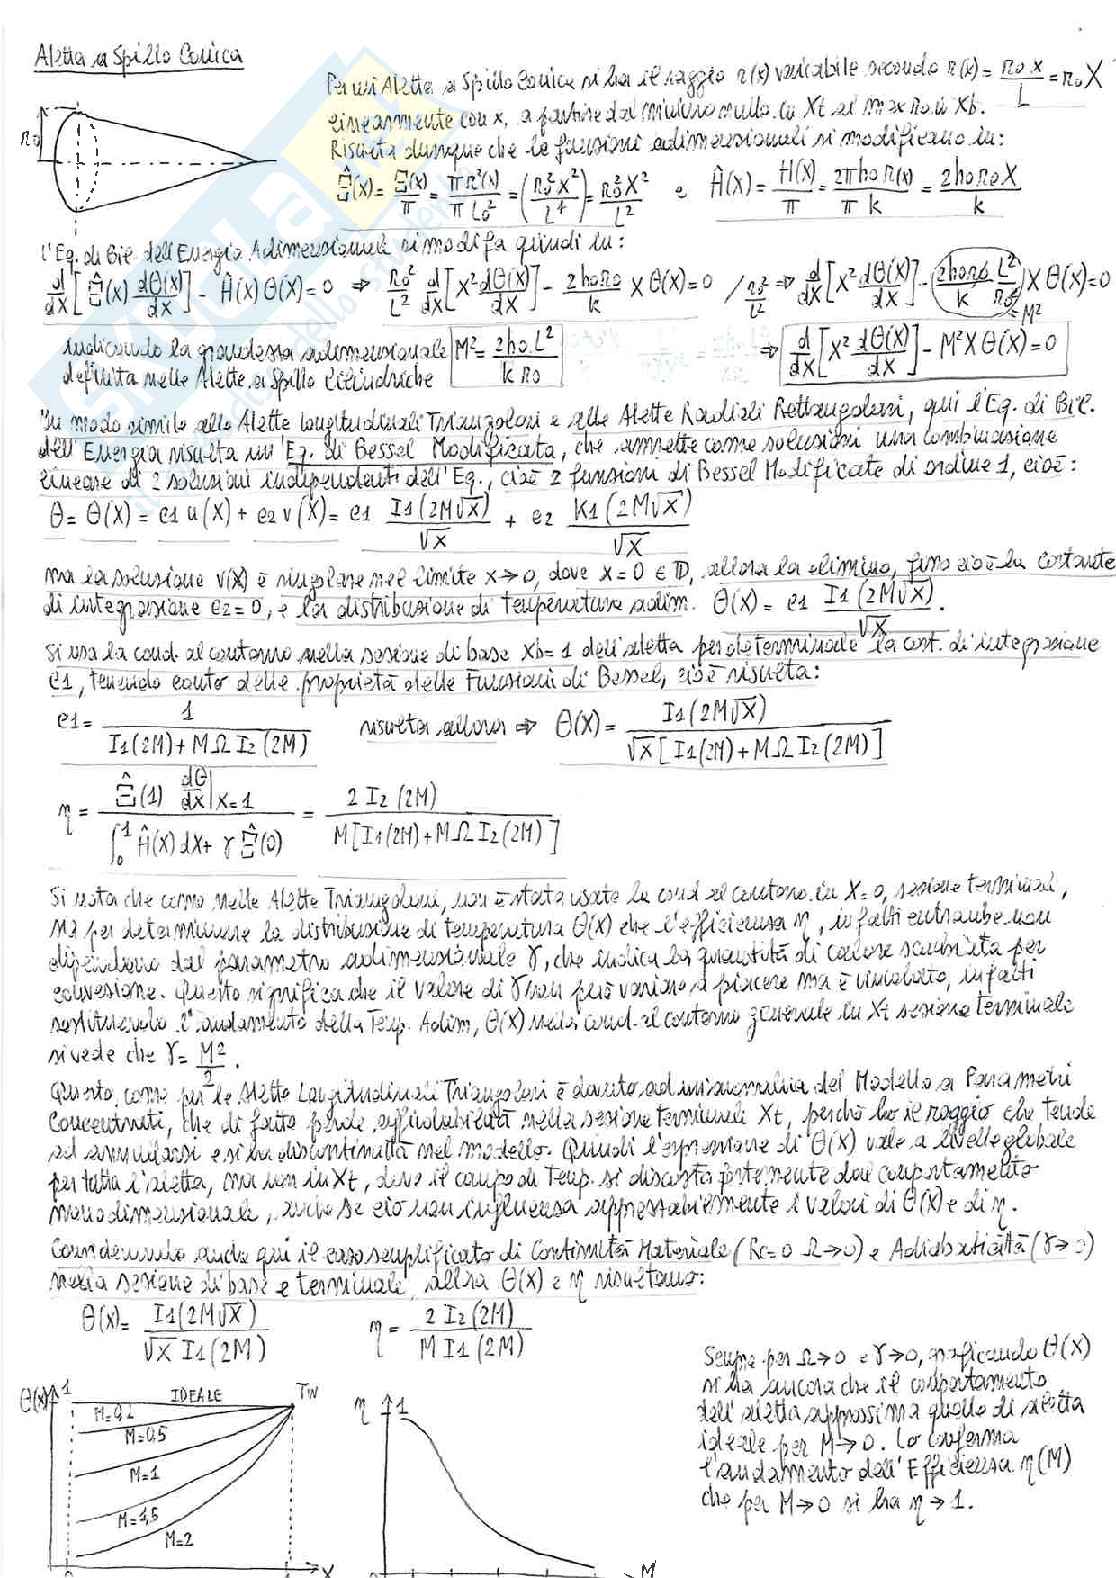 Aletta a Spillo Conica
Per un'Aletta a Spillo Conica si ha il raggio r(x) variabile secondo r(x) = r0 x / L = r0 X
linearmente con x, a partire dal minimo nullo in Xt al max r0 in Xb.
r0
Risulta dunque che le funzioni adimensionali si modificano in:
Ξ̂(X) = Ξ(x)/π = π r²(x)/π L0² = (r0² X²/L⁴) = r0² X²/L² e Ĥ(X) = H(x)/π = 2π h0 r(x)/π k = 2 h0 r0 X/k
L'Eq. di Bil. dell'Energia Adimensionale si modifa quindi in:
d/dX [Ξ̂(X) dθ(X)/dX] - Ĥ(X) θ(X) = 0 ⇒ r0²/L² d/dX [X² dθ(X)/dX] - 2h0r0/k X θ(X) = 0 / r0²/L² ⇒ d/dX [X² dθ(X)/dX] - (2h0r0/k L²/r0²) X θ(X) = 0
= M²
indicando la grandezza adimensionale M² = 2h0 L²/k r0 ⇒ d/dX [X² dθ(X)/dX] - M² X θ(X) = 0
definita nelle Alette a Spillo Cilindriche
In modo simile alle Alette Longitudinali Triangolari e alle Alette Radiali Rettangolari, qui l'Eq. di Bil.
dell'Energia risulta un'Eq. di Bessel Modificata, che ammette come soluzioni una combinazione
lineare di 2 soluzioni indipendenti dell'Eq., cioè 2 funzioni di Bessel Modificate di ordine 1, cioè:
θ = θ(X) = c1 u(X) + c2 v(X) = c1 I1(2M√X)/√X + c2 K1(2M√X)/√X
ma la soluzione v(X) è singolare nel limite x→0, dove x=0 ∈ D, allora la elimino, fisso cioè la costante
di integrazione c2=0, e la distribuzione di temperatura adim. θ(X) = c1 I1(2M√X)/√X .
Si usa la cond. al contorno nella sezione di base Xb=1 dell'aletta per determinare la cost. di integrazione
c1, tenendo conto delle proprietà delle Funzioni di Bessel, cioè risulta:
c1 = 1/I1(2M)+MΩ I2(2M) risulta allora ⇒ θ(X) = I1(2M√X)/√X [I1(2M)+MΩ I2(2M)]
η = Ξ̂(1) dθ/dX|X=1 / ∫₀¹ Ĥ(X)dX + γ Ξ̂(0) = 2 I2(2M)/M[I1(2M)+MΩ I2(2M)]
Si nota che come nelle Alette Triangolari, non è stata usata la cond al contorno in X=0, sezione terminale,
né per determinare la distribuzione di temperatura θ(X) che l'efficienza η, infatti entrambe non
dipendono dal parametro adimensionale γ, che indica la quantità di calore scambiata per
convezione. Questo significa che il valore di γ non può variare a piacere ma è vincolato, infatti
sostituendo l'andamento della Temp. Adim, θ(X) nella cond. al contorno generale in Xt sezione terminale
si vede che γ = M²/2 .
Questo, come per le Alette Longitudinali Triangolari è dovuto ad un'anomalia del Modello a Parametri
Concentrati, che di fatto perde affidabilità nella sezione terminale Xt, perché ho il raggio che tende
ad annullarsi e si ha discontinuità nel modello. Quindi l'espressione di θ(X) vale a livello globale
per tutta l'aletta, ma non in Xt, dove il campo di Temp. si discosta fortemente dal comportamento
monodimensionale, anche se ciò non influenza apprezzabilmente i valori di θ(X) e di η.
Considerando anche qui il caso semplificato di Continuità Materiale (Rc=0 Ω→0) e Adiabaticità (γ→0)
nella sezione di base e terminale, allora θ(X) e η risultano:
θ(X) = I1(2M√X)/√X I1(2M) η = 2 I2(2M)/M I1(2M)
Sempre per Ω→0 e γ→0, graficando θ(X)
si ha ancora che il comportamento
dell'aletta approssima quello di aletta
ideale per M→0. Lo conferma
l'andamento dell'Efficienza η(M)
che per M→0 si ha η→1.
θ(X) 1 IDEALE TW
M=0,2
M=0,5
M=1
M=1,5
M=2
X
η 1
M